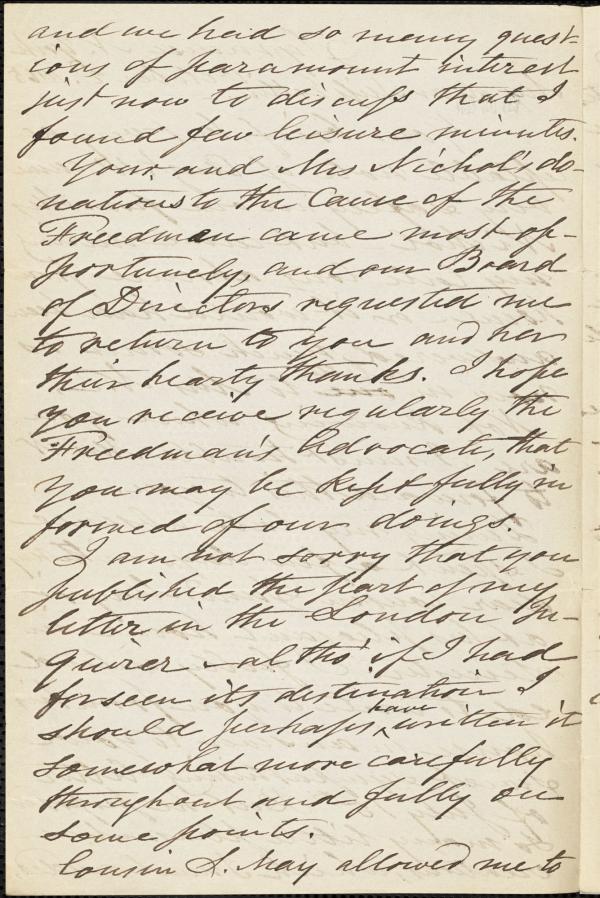 and we had so many quest-
ions of paramount interest
just now to discuss that I
found few leisure minutes.
Your and Mrs Nichol's do-
nations to the Cause of the
Freedmen came most op-
portunely, and our Board
of Directors requested me
to return to you and her
their hearty thanks. I hope
you receive regularly the
Freedman's Advocate, that
you may be kept fully in
formed of our doings.
I am not sorry that you
published the part of my
letter in the London In-
quirer - altho' if I had
forseen its destination I
should perhaps, have written it
somewhat more carefully
throughout and fully on
some points.
Cousin S. May allowed me to